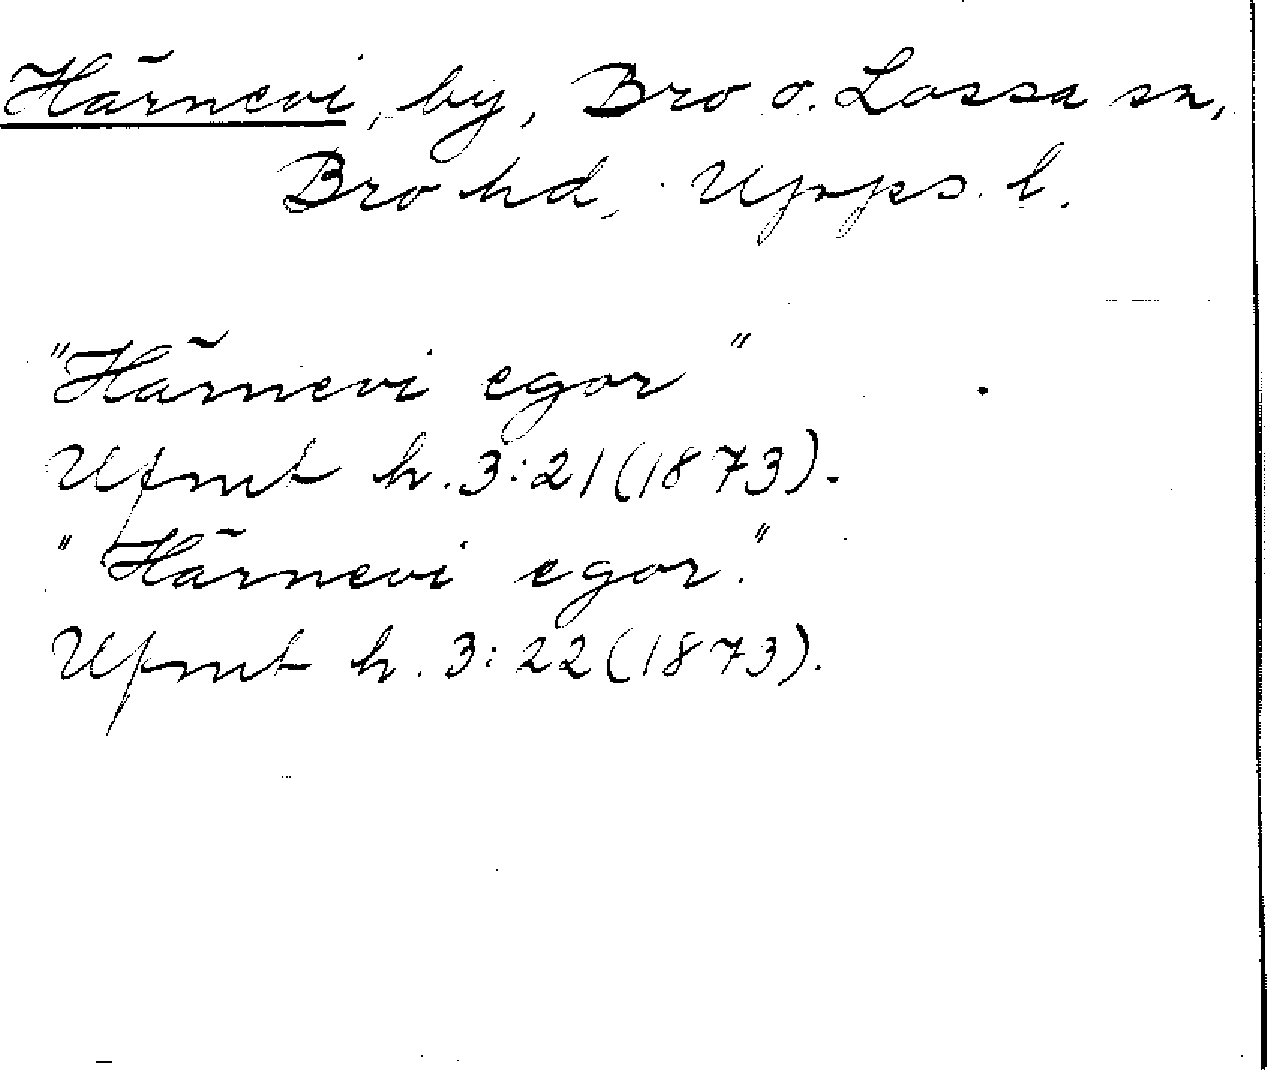 Härnevi, by, Bro o. Lossa sn,
Bro hd, Upps. l.
"Härnevi egor"
Ufmt h. 3:21 (1873).
"Härnevi egor."
Ufmt h. 3:22 (1873).